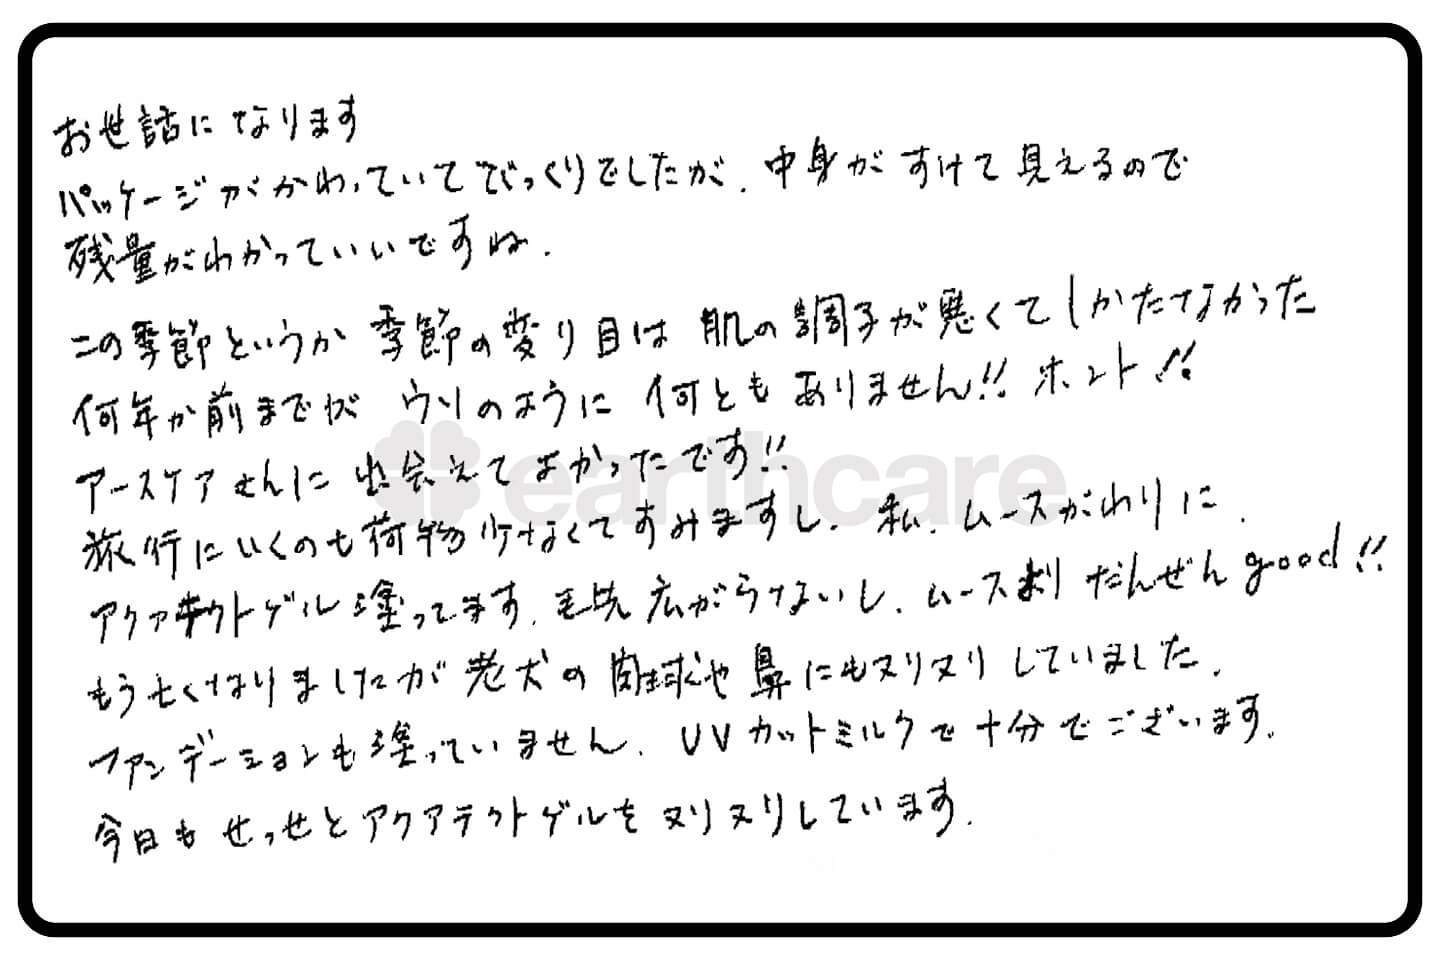 お世話になります
パッケージがかわっていてびっくりでしたが、中身がすけて見えるので
残量がわかっていいですね.
この季節というか 季節の変り目は 肌の調子が悪くてしかたなかった
何年か前までが ウソのように 何ともありません!! ホント!!
アースケアさんに 出会えてよかったです!!
earthcare
旅行にいくのも荷物少なくてすみますし、私、ムースがわりに、
アクアテクトゲル塗ってます、毛先広がらないし、ムースより だんぜん good!!
もう亡くなりましたが 老犬の 肉球や 鼻にもヌリヌリしていました、
ファンデーションも塗っていません、UVカットミルクで十分でございます、
今日もせっせとアクアテクトゲルをヌリヌリしています、